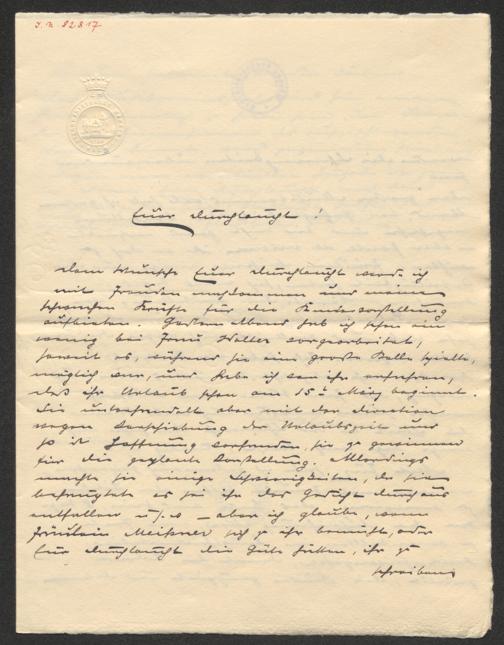 I. N. 82817
Euer Durchlaucht!
Dem Wunsche Euer Durchlaucht werde ich
mit Freuden nachkommen und meine
schwachen Kräfte für die Kindervorstellung
aufbieten. Gestern Abend hab ich schon ein
wenig bei Frau Haller vorgearbeitet,
soweit es, während sie eine große Rolle spielte,
möglich war, und habe ich von ihr erfahren,
daß ihr Urlaub schon am 15t März beginnt.
Sie unterhandelt aber mit der Direction
wegen Verschiebung der Urlaubszeit und
so ist Hoffnung vorhanden, sie zu gewinnen
für die geplante Vorstellung. Allerdings
machte sie einige Schwierigkeiten, da sie
befürchtete es sei ihr das Gedicht durchaus
entfallen u.s.w – aber ich glaube, wenn
Fräulein Meißner sich zu ihr bemüht, oder
Euer Durchlaucht die Güte hätten, ihr zu
schreiben